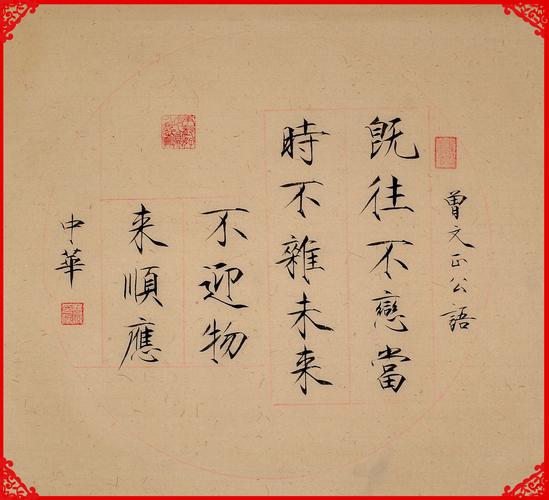 曾文正公語
既往不戀當
時不雜未来
不迎物
来順應
中華